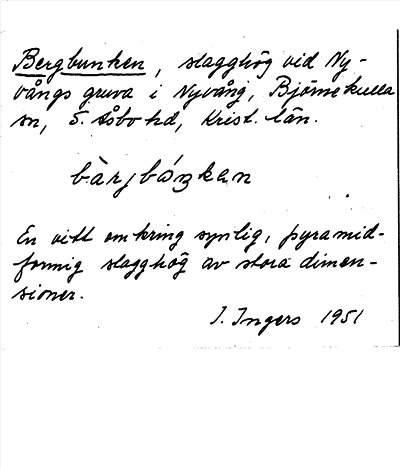 Bergbunken, slagghög vid Ny-
vångs gruva i Nyvång, Björnekulla
sn, S. Åsbo hd, Krist. län.
En vitt omkring synlig, pyramid-
formig slagghög av stora dimen-
sioner.
I. Ingers 1951